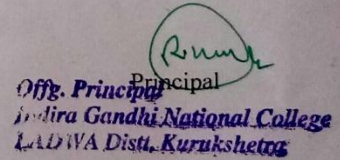 Principal
Offg. Principal
Indira Gandhi National College
LADWA Distt, Kurukshetra